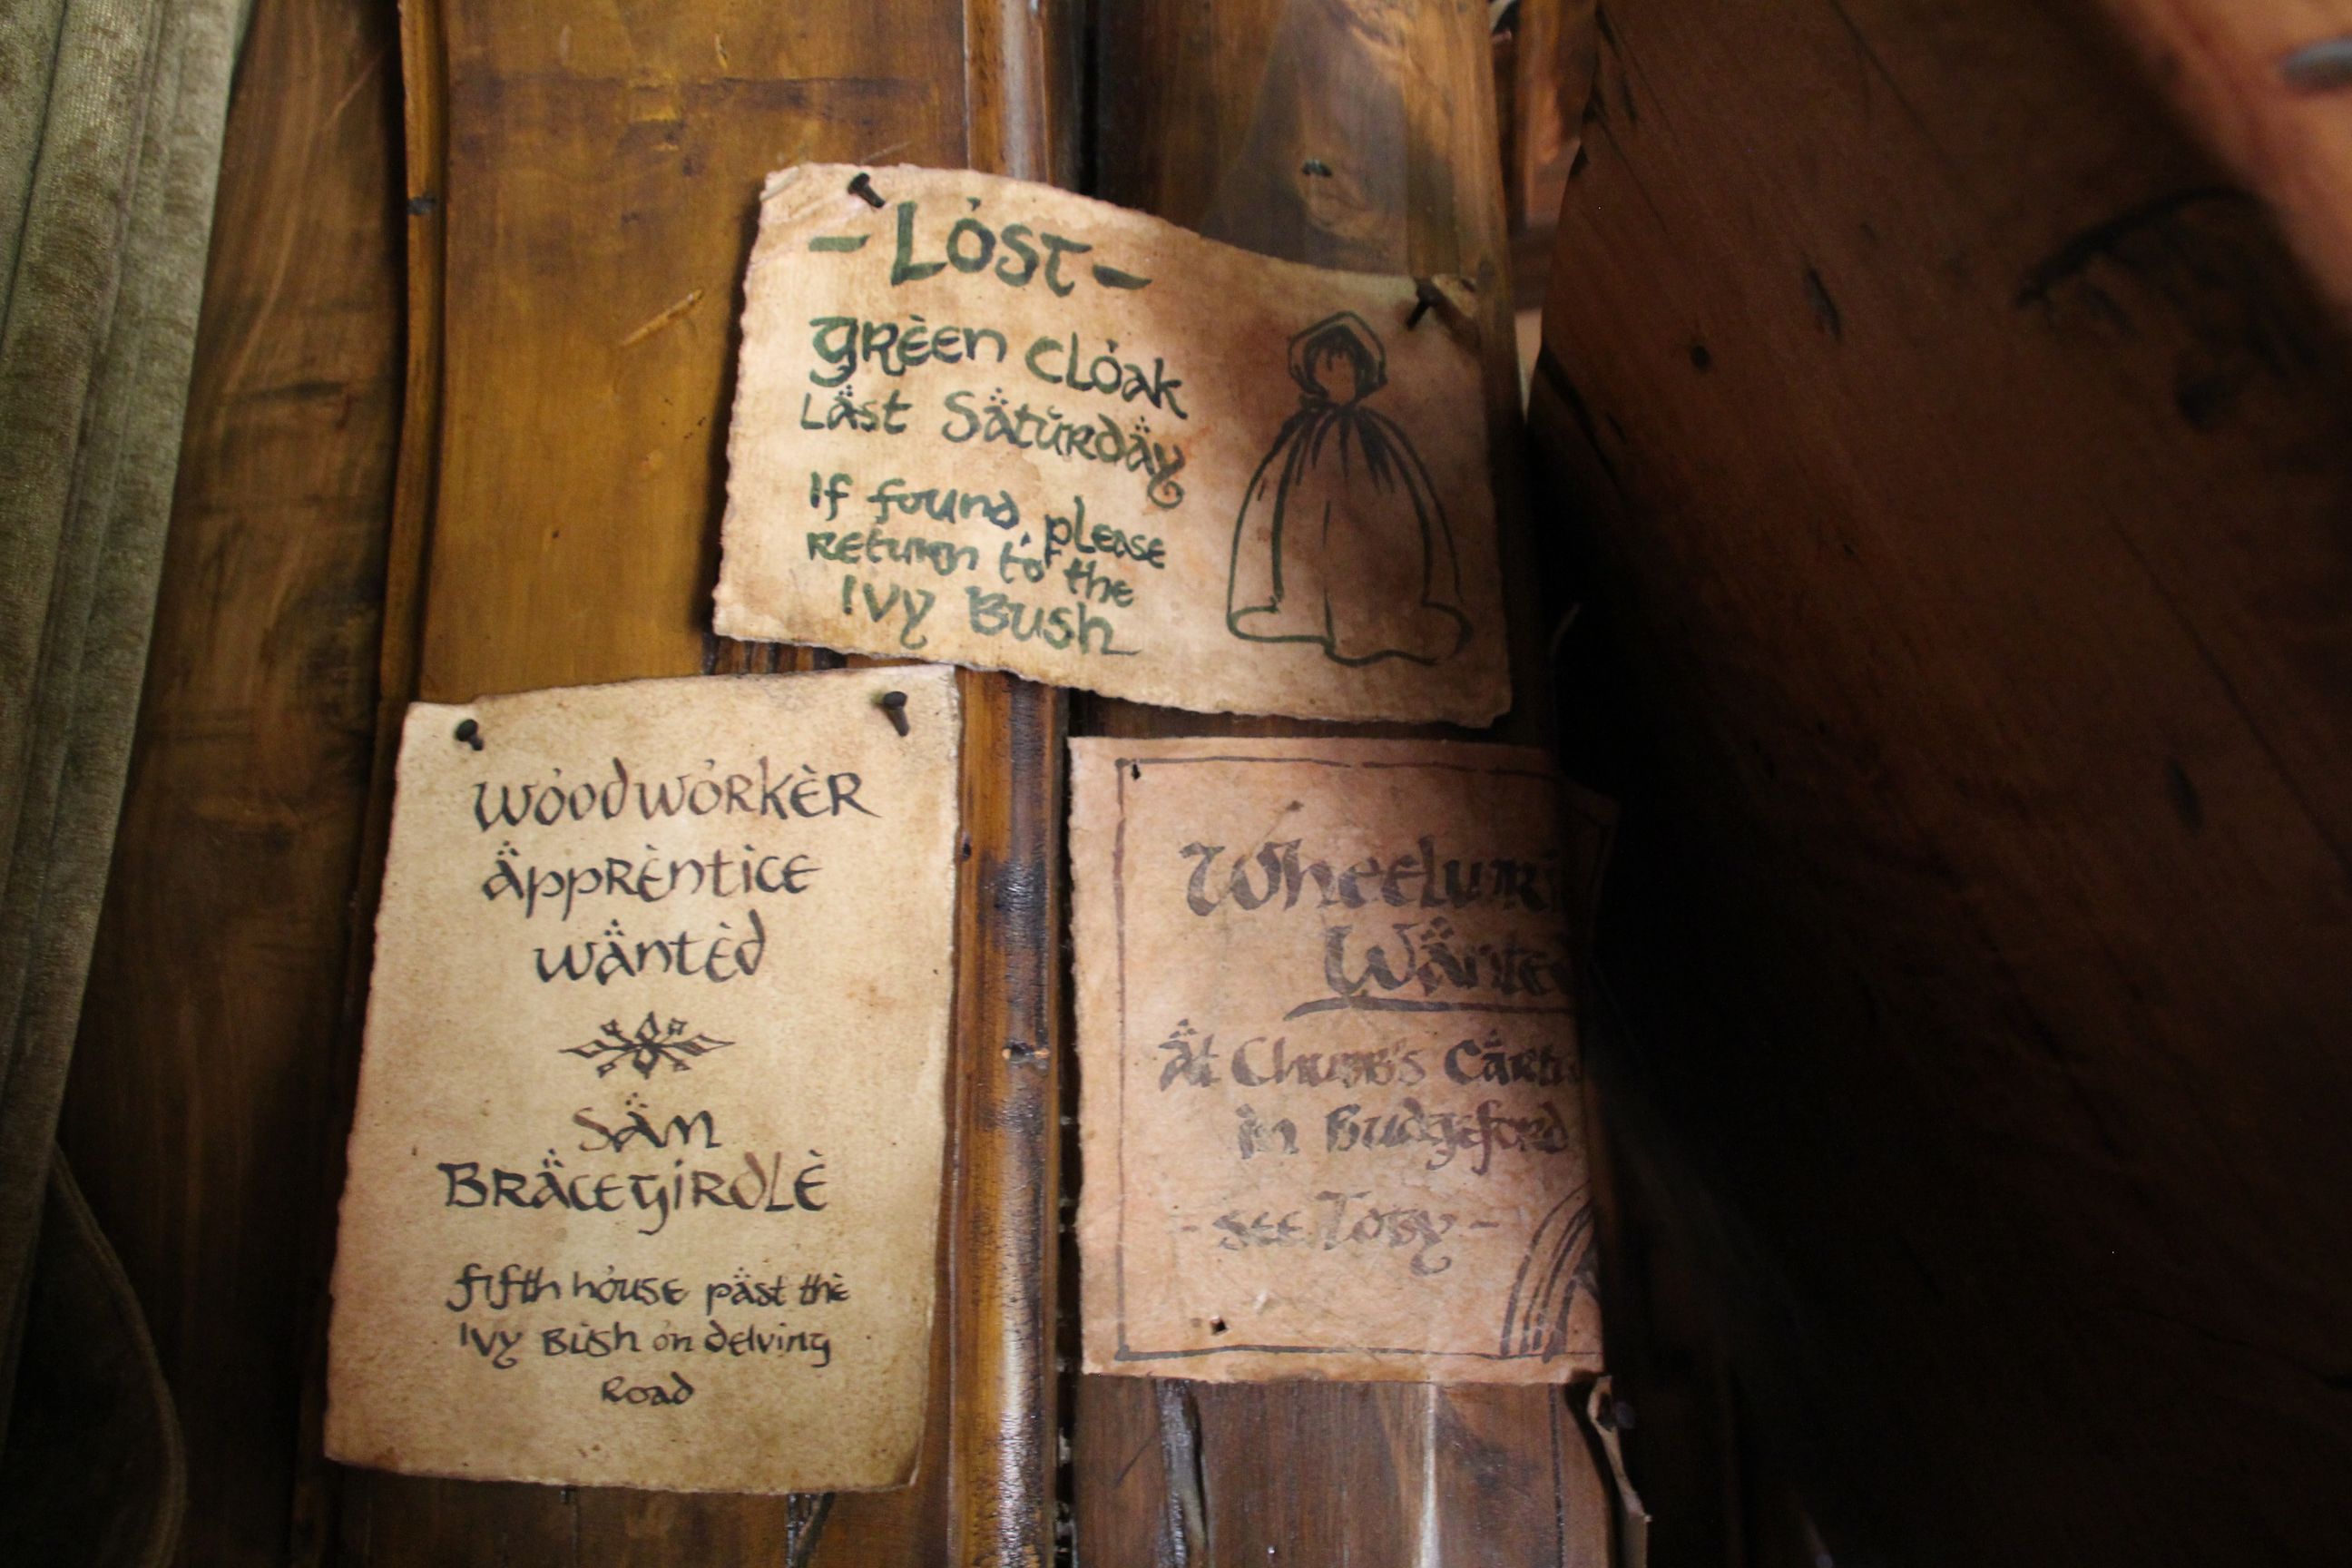 - LȯST -
GRÈEN CLȯak
Läst Säturday
If found, please
return to the
Ivy Bush
WȯodwȯRKÈR
äppRÈnticE
wäntÈd
Säm
BRäcegiRdLÈ
fifth house päst thè
Ivy Bush on delving
Road
Wänted
ät Chubb's
in Budgeford
- see Tosy -